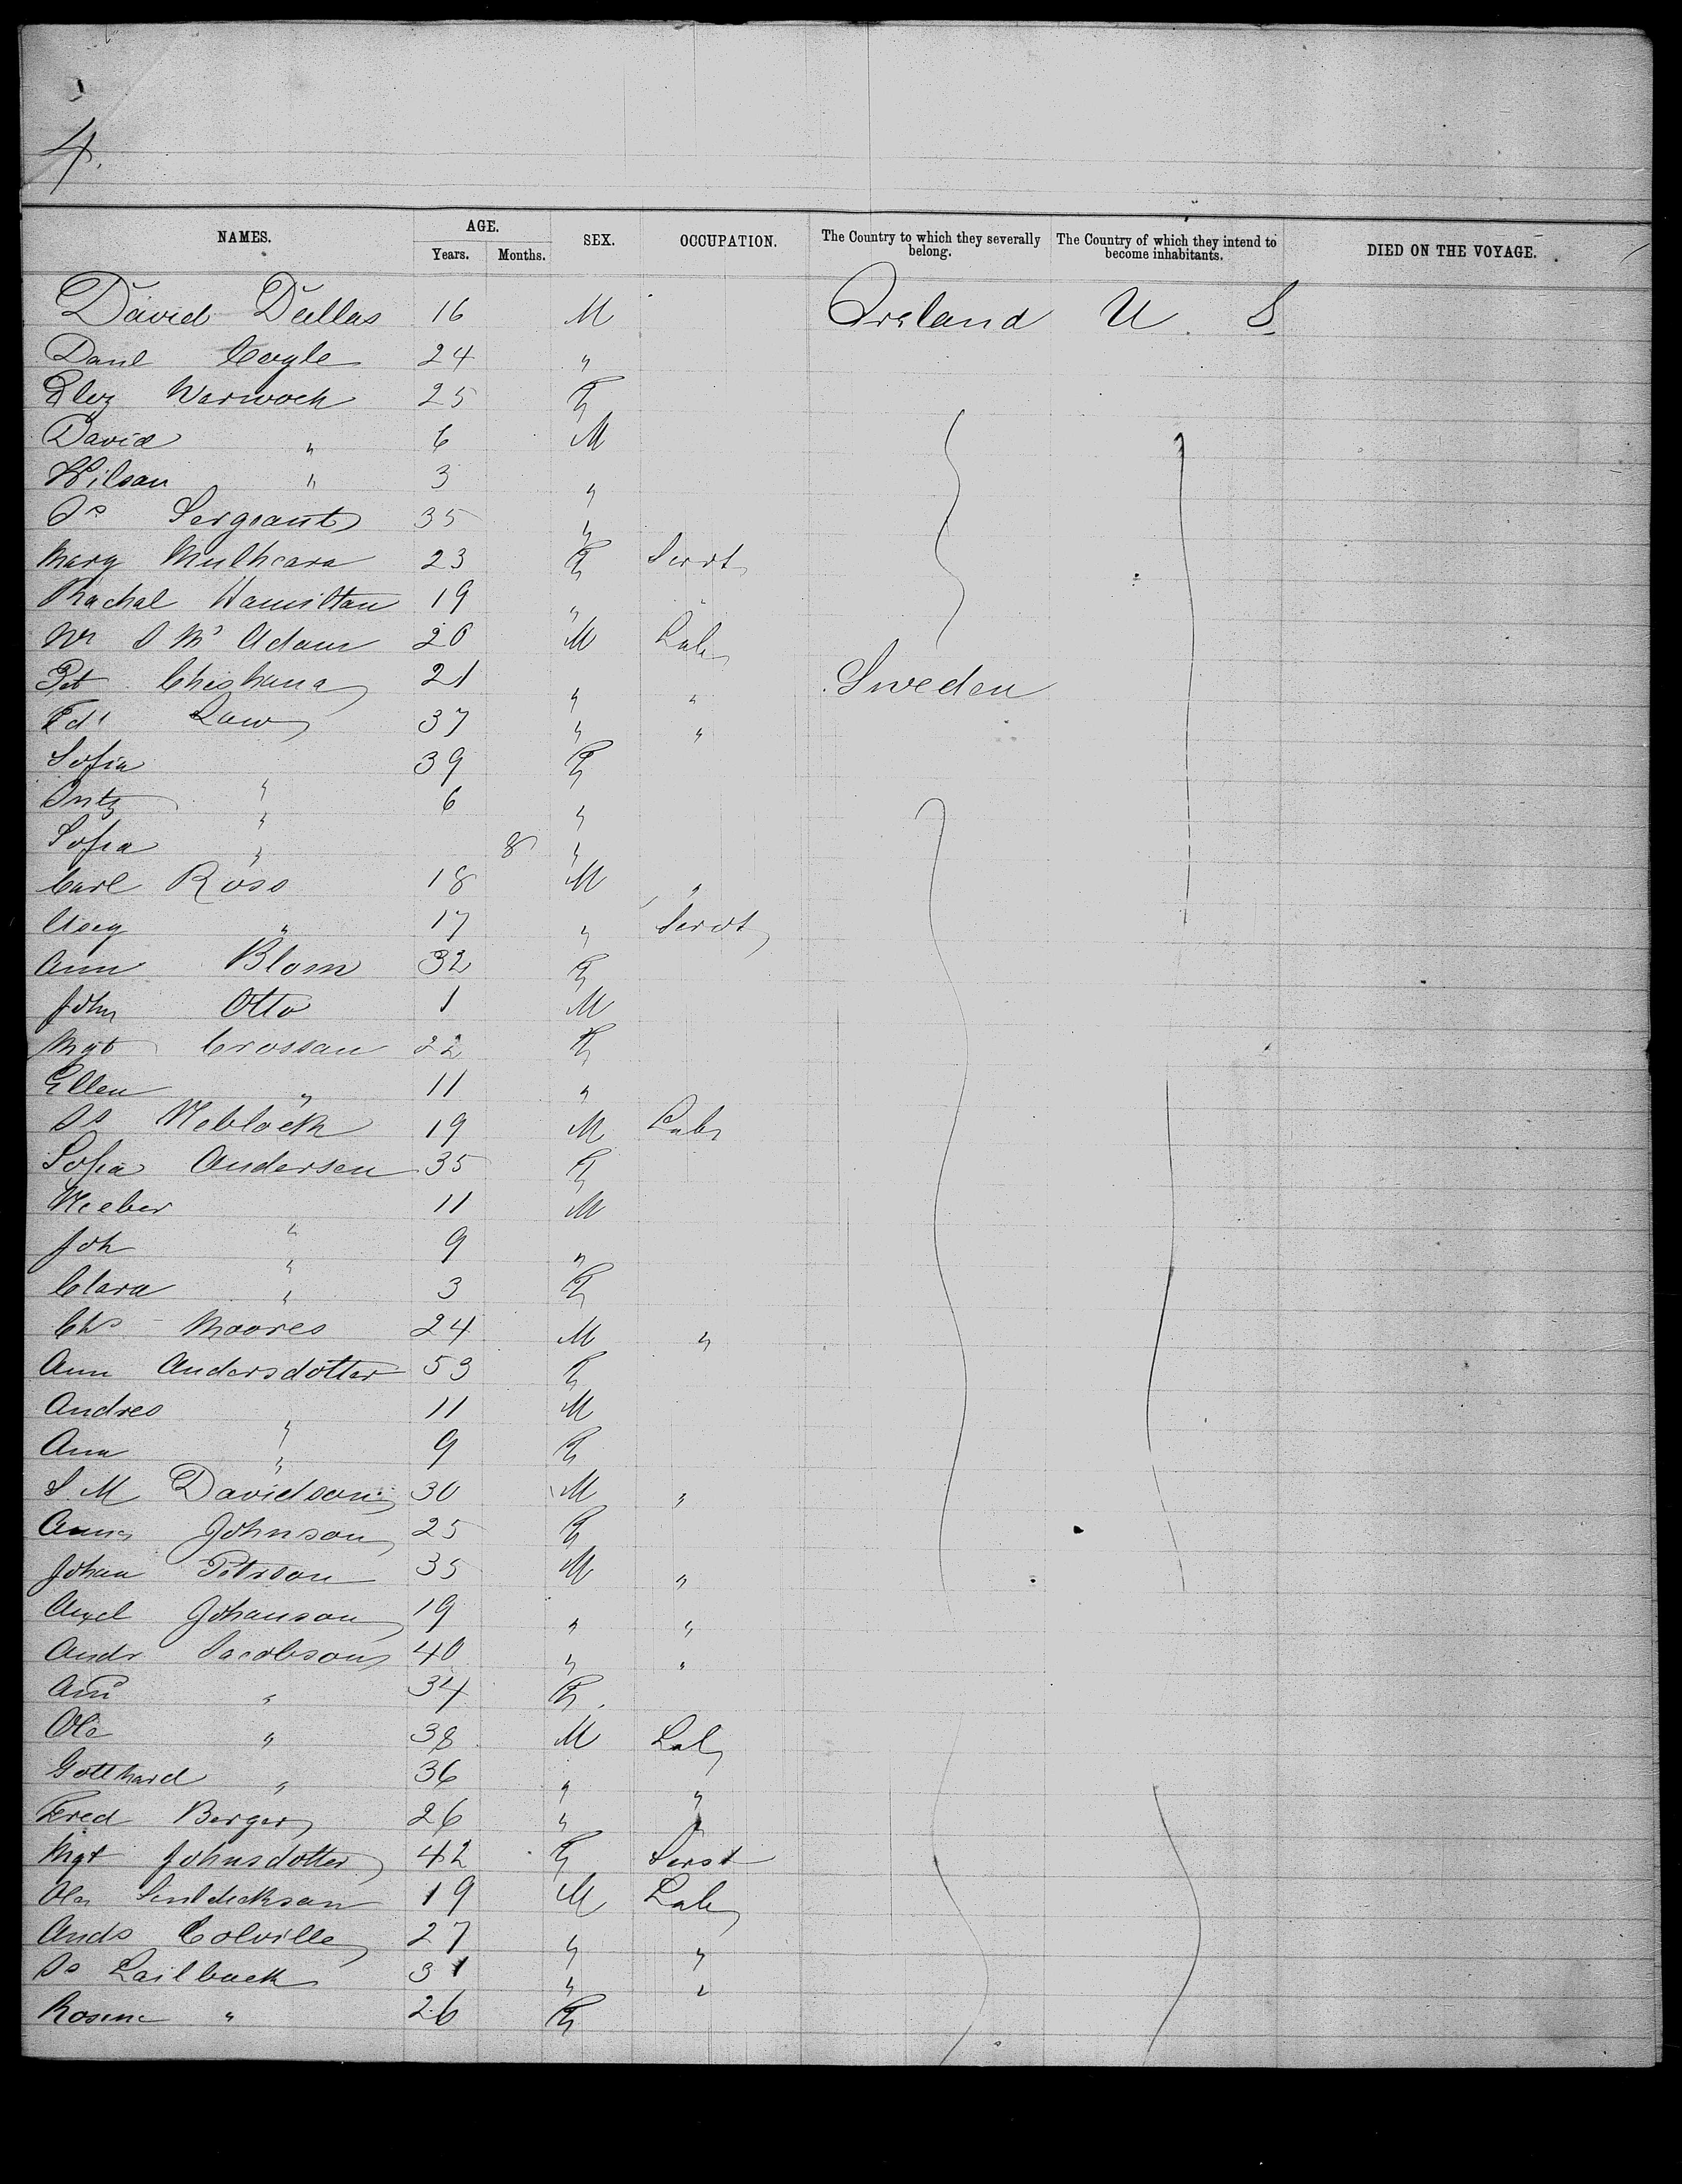 4.
NAMES. AGE. Years. Months. SEX. OCCUPATION. The Country to which they severally belong. The Country of which they intend to become inhabitants. DIED ON THE VOYAGE.
David Dallas 16 M Ireland U. S
Danl Coyle 24 "
Eliz Warwock 25 F
David " 6 M
Wilson " 3 "
Js Sergeant 35 "
Mary Mulheara 23 F Servt
Rachal Hamilton 19 " "
Wm J McAdam 20 M Lab
Pet 21 " " Sweden
Edd Law 37 " "
Sofia " 39 F
" 6 "
Sofia " 8 "
Carl Ross 18 M "
Aug " 17 " Servt
Ann Blom 32 F
John Otto 1 M
Mgt Crossan 22 F
Ellen " 11 "
Js 19 M Lab
Sofia Andersen 35 F
" 11 M
Joh " 9 "
Clara " 3 F
Chs Moores 24 M "
Ann Andersdotter 53 F
Andres " 11 M
Ann " 9 F
S. M Davidson 30 M "
Anna Johnson 25 F
Johan Peterson 35 M "
Axel Johanson 19 " "
Andr Jacobson 40 " "
Ann " 34 F
Ole " 38 M Lab
Gotthard " 36 " "
Fred Berger 26 " "
Mgt Johnsdotter 42 F Servt
Ola 19 M Lab
Ands Colville 27 " "
Js Lailback 31 " "
Rosine " 26 F